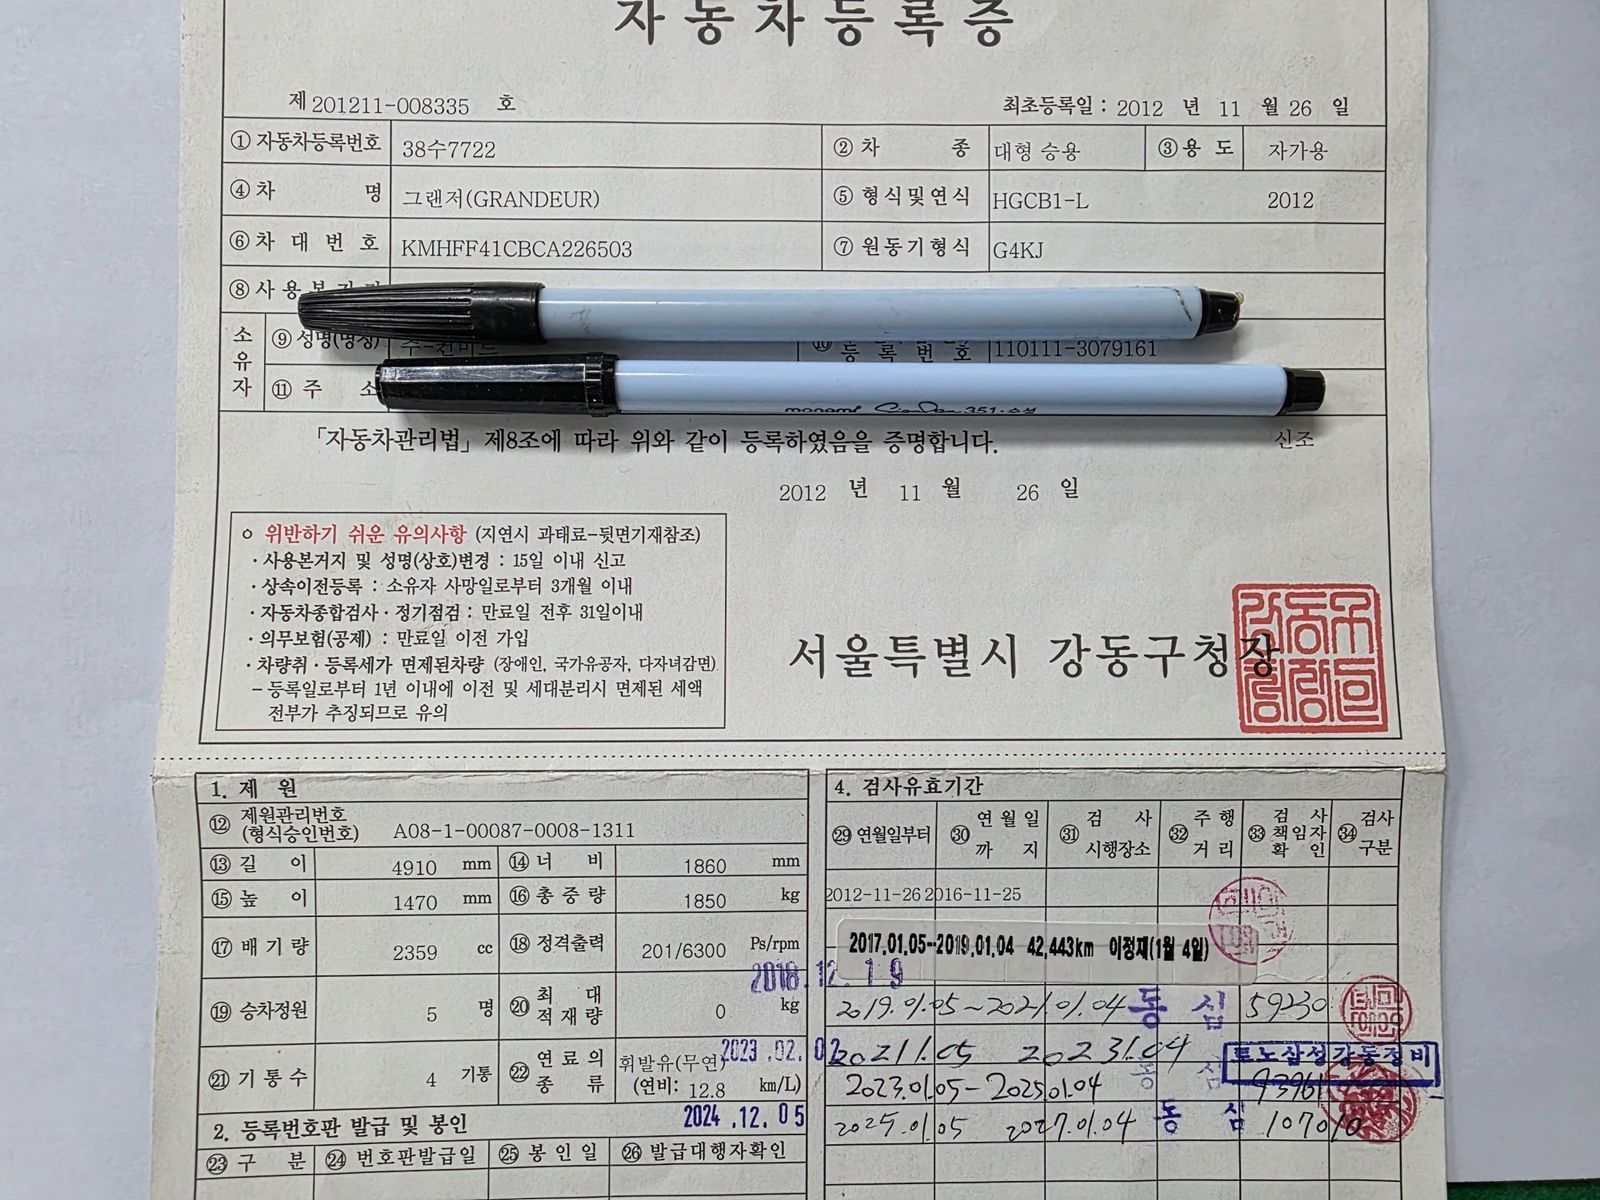 자동차등록증
제 201211-008335 호 최초등록일 : 2012 년 11 월 26 일
① 자동차등록번호 38수7722 ② 차 종 대형 승용 ③ 용 도 자가용
④ 차 명 그랜저(GRANDEUR) ⑤ 형식및연식 HGCB1-L 2012
⑥ 차 대 번 호 KMHFF41CBCA226503 ⑦ 원동기형식 G4KJ
⑧ 사용본거지
소유자 ⑨ 성명(명칭) ⑩ 등 록 번 호 110111-3079161
⑪ 주 소
monami 351
「자동차관리법」 제8조에 따라 위와 같이 등록하였음을 증명합니다. 신조
2012 년 11 월 26 일
○ 위반하기 쉬운 유의사항 (지연시 과태료-뒷면기재참조)
· 사용본거지 및 성명(상호)변경 : 15일 이내 신고
· 상속이전등록 : 소유자 사망일로부터 3개월 이내
· 자동차종합검사 · 정기점검 : 만료일 전후 31일이내
· 의무보험(공제) : 만료일 이전 가입
· 차량취 · 등록세가 면제된차량 (장애인, 국가유공자, 다자녀감면)
- 등록일로부터 1년 이내에 이전 및 세대분리시 면제된 세액
전부가 추징되므로 유의
서울특별시 강동구청장
1. 제 원
⑫ 제원관리번호 (형식승인번호) A08-1-00087-0008-1311
⑬ 길 이 4910 mm ⑭ 너 비 1860 mm
⑮ 높 이 1470 mm ⑯ 총 중 량 1850 kg
⑰ 배 기 량 2359 cc ⑱ 정격출력 201/6300 Ps/rpm
⑲ 승차정원 5 명 ⑳ 최 대 적 재 량 0 kg
㉑ 기 통 수 4 기통 ㉒ 연 료 의 종 류 휘발유(무연) (연비: 12.8 km/L)
2. 등록번호판 발급 및 봉인
㉓ 구 분 ㉔ 번호판발급일 ㉕ 봉 인 일 ㉖ 발급대행자확인
4. 검사유효기간
㉙ 연월일부터 ㉚ 연 월 일 까 지 ㉛ 검 사 시행장소 ㉜ 주 행 거 리 ㉝ 검 사 책임자 확 인 ㉞ 검사 구분
2012-11-26 2016-11-25
2017.01.05-2019.01.04 42,443km 이정재(1월 4일)
2018.12.19
2019.01.05~2021.01.04 동 심 59230
2023.02.02
2021.1.05 2023.1.04 동 심
르노삼성강동정비
2023.01.05-2025.01.04 93961
2024.12.05
2025.01.05 2027.01.04 동 심 107010